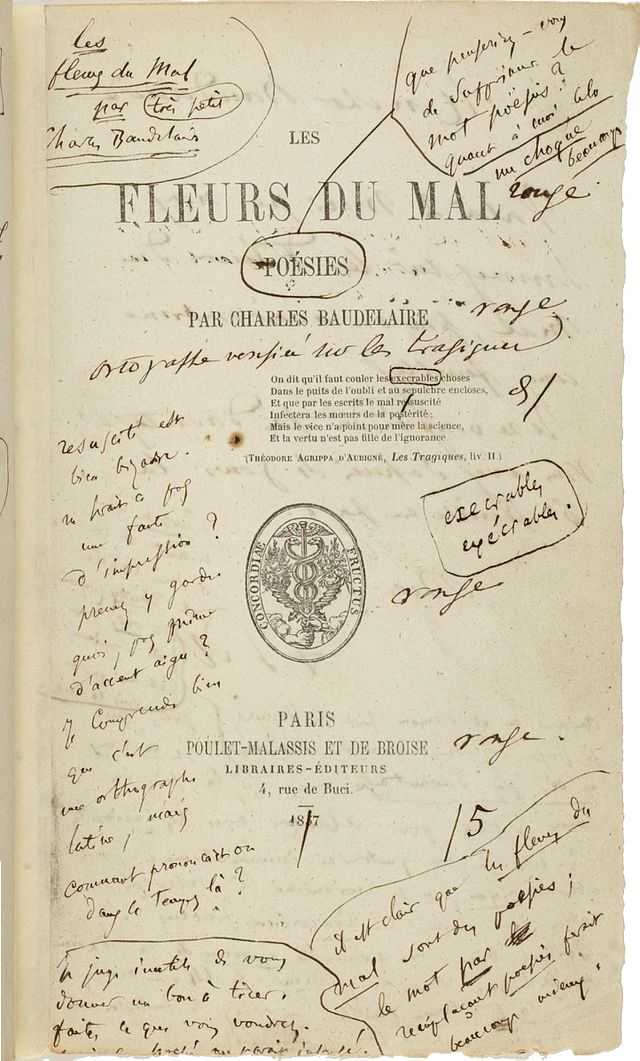 les
fleurs du Mal
par très petit
Charles Baudelaire
que penseriez-vous
de supprimer le
mot poësies?
quant à moi cela
me choque
beaucoup
LES
FLEURS DU MAL
rouge.
POÉSIES
PAR CHARLES BAUDELAIRE
rouge
ortographe versifié sur les tragiques
On dit qu'il faut couler les execrables choses
Dans le puits de l'oubli et au sepulchre encloses,
Et que par les escrits le mal resuscité
Infectera les mœurs de la postérité;
Mais le vice n'a point pour mère la science,
Et la vertu n'est pas fille de l'ignorance
(THÉODORE AGRIPPA D'AUBIGNÉ, Les Tragiques, liv. II)
resuscité est
bien bizarre.
ne serait-ce pas
une faute
d'impression?
prenez y garde.
quoi, pas même
d'accent aigu?
je comprends bien
que c'est
une orthographe
latine, mais
comment prononçait on
dans le temps là?
execrables
exécrables.
CONCORDIÆ FRUCTUS
rouge
PARIS
POULET-MALASSIS ET DE BROISE
rouge.
LIBRAIRES-ÉDITEURS
4, rue de Buci.
1857
/5
il est clair que les fleurs du
mal sont des poësies;
le mot par
remplaçant poësies ferait
beaucoup mieux.
Je juge inutile de vous
donner un bon à tirer.
faites ce que vous voudrez.